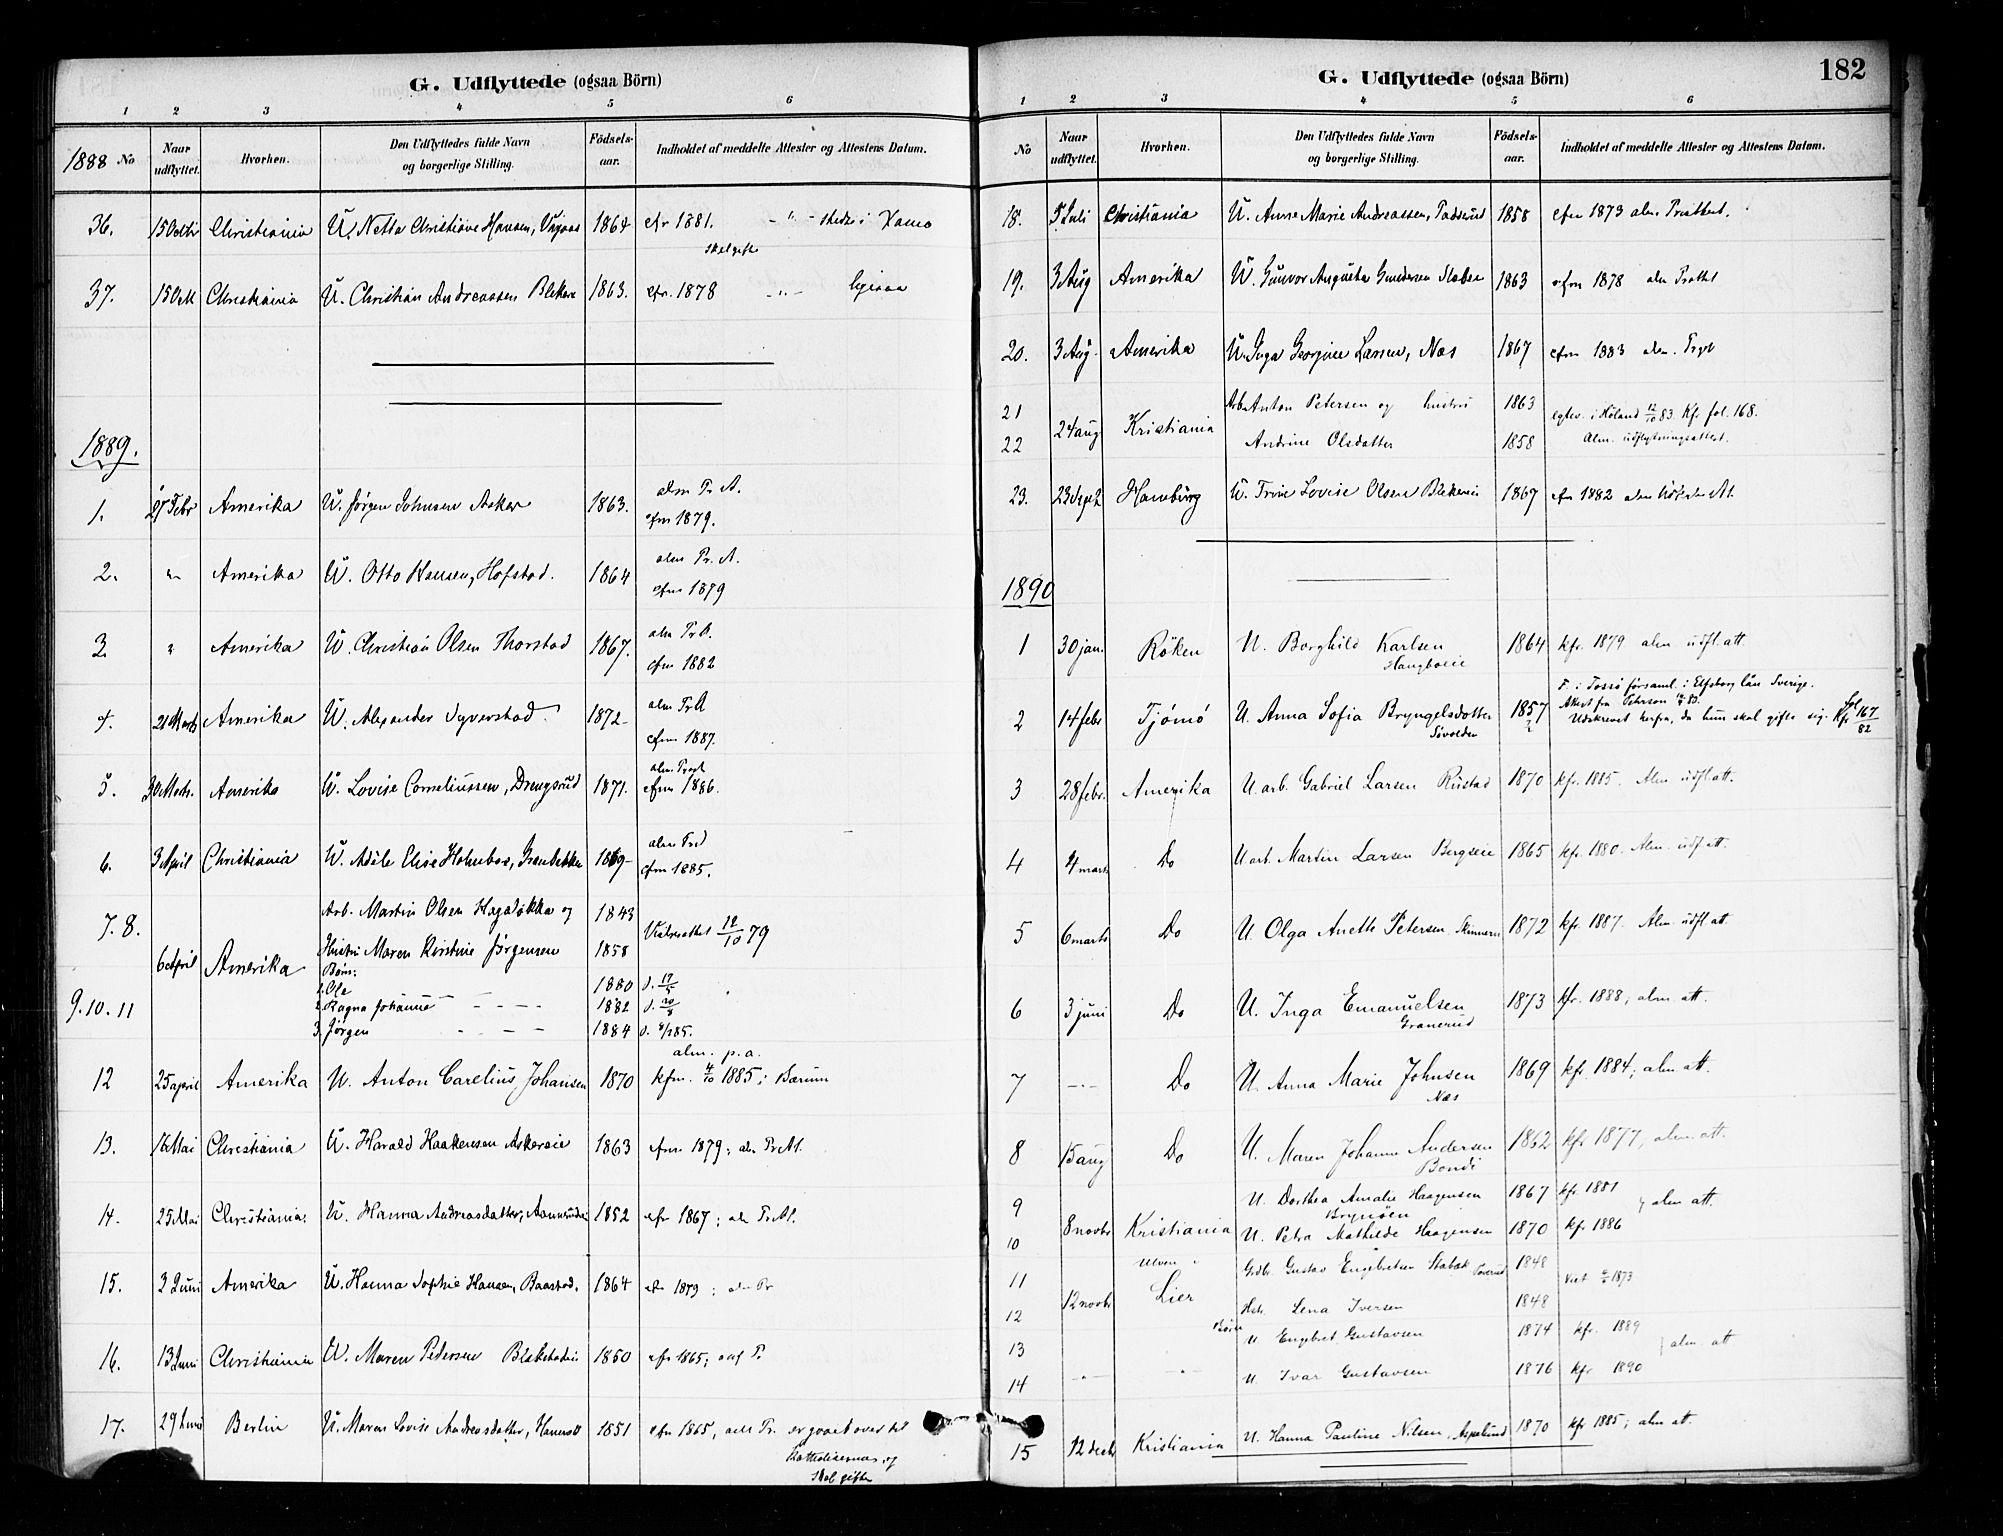 G. Udflyttede (ogsaa Börn)
1 2 3 4 5 6
1888 No
Naar udflyttet.
Hvorhen.
Den Udflyttedes fulde Navn og borgerlige Stilling.
Födsels-aar.
Indholdet af meddelte Attester og Attestens Datum.
36. 15 Octbr Christiania U. Netta Christiane Hansen, 1864 cfr 1881. - " - i
Skal gifte
37. 15 Oct Christiania U. Christian Andreassen 1863. cfr. 1878 - " -
1889.
1. 27 Febr Amerika U. Jørgen Johnsen Asker 1863. alm Pr. A.
cfm 1879.
2. " Amerika U. Otto Hansen, Hofstad. 1864 alm Pr. A.
cfm 1879
3. " Amerika U. Christian Olsen Thorstad 1867. alm Pr A.
cfm 1882
4. 21 Marts Amerika U. Alexander Syverstad. 1872 alm Pr A
cfm 1887.
5. 30 Marts. Amerika U. Lovise Corneliussen, Drengsrud 1871. alm Prest
cfm 1886.
6. 3 April Christiania U. Adèle Elise Holmboe, 1869 alm Pr
cfm 1885.
7. 8. Arb. Martin Olsen Hagaløkka og 1843
6 April Amerika Hustru Maren Kirstine Jørgensen 1858 12/10 79
Børn:
9. 10. 11 1. Ole 1880 d. 17/5
2. Ragna Johanne - - - - 1882 d. 20/8
3. Jørgen - - - 1884 d. 8/1 85.
12 25 april Amerika U. Anton Carelius Johansen 1870 alm. p. a.
kfm. 4/10 1885 i Bærum
13. 16 Mai Christiania U. Harald Haakensen Askereie 1863 cfm 1879; alm Pr At.
14. 25 Mai Christiania. U. Hanna Andreasdatter, 1852 cfr 1867; alm Pr At.
15. 3 Juni Amerika U. Hanna Sophie Hansen, Baastad. 1864 cfr 1879; alm Pr
16. 13 Juni Christiania U. Maren Pedersen 1850 cfr 1865; P.
17. 29 Juni Berlin U. Maren Lovise Andreasdatter, 1851 cfm 1865, alm Pr. er gaaet over til
Katholicismen, og
Skal gifte
G. Udflyttede (ogsaa Börn)
182
1 2 3 4 5 6
No
Naar udflyttet.
Hvorhen.
Den Udflyttedes fulde Navn og borgerlige Stilling.
Födsels-aar.
Indholdet af meddelte Attester og Attestens Datum.
18. 5 Juli Christiania U. Anne Marie Andreassen, 1858 cfm 1873 alm. Prattest.
19. 3 Aug Amerika U. Gunvor Augusta Gundersen 1863 cfm 1878 alm Prattst
20. 3 Aug. Amerika U. Inga Georgine Larsen, Næs 1867 cfm 1883 alm.
21 Arb. Anton Petersen og hustru 1863 i Høland 12/10 83. Kf. fol. 168.
24 aug Kristiania
22 Andrine Olsdatter 1858 Alm. udflytningsattest.
23. 23 Sept Hamburg U. Trine Lovise Olsen 1867 cfm 1882 alm At.
1890
1 30 jan. Röken U. Borghild Karlsen 1864 kfr. 1879 alm udfl. att.
Haugboeie
2 14 febr Tjömö U. Anna Sofia Bryngelsdotter 1857 F. i Tossö församl. i Elfsborg län Sverige.
Attest fra Peterson
Udskrevet herfra, da hun skal gifte sig. Kfr. fol 167/82
3 28 febr. Amerika U. arb. Gabriel Larsen Rustad 1870 kfr. 1885. Alm udfl. att.
4 4 marts Do U. arb. Martin Larsen Bergseie 1865 kfr. 1880. Alm. udf. att.
5 6 marts Do U. Olga Anette Petersen 1872 kfr. 1887. Alm udfl att.
6 3 juni Do U. Inga Emanuelsen 1873 kfr. 1888, alm att.
Granerud
7 - " - Do U. Anna Marie Johnsen 1869 kfr. 1884; alm att.
Næs
8 15 aug Do U. Maren Johanne Andersen 1862 kfr 1877, alm. att.
Bondi
9 U. Dorthea Amalie Haagensen 1867 kfr 1881
Brynöen } alm att.
10 8 novbr Kristiania U. Petra Mathilde Haagensen 1870 kfr 1886
11 Grdbr. Gustav Engebretsen Stabæk 1848 1873
12 12 novbr Lier Hstr. Lena Iversen 1848
13 Börn U. Engebret Gustavsen 1874 kfr. 1889
} alm. att
14 - " - - " - U. Ivar Gustavsen 1876 kfr 1890
15 12 decbr Kristiania U. Hanna Pauline Nilsen, Aspelund 1870 kfr 1885; alm att.